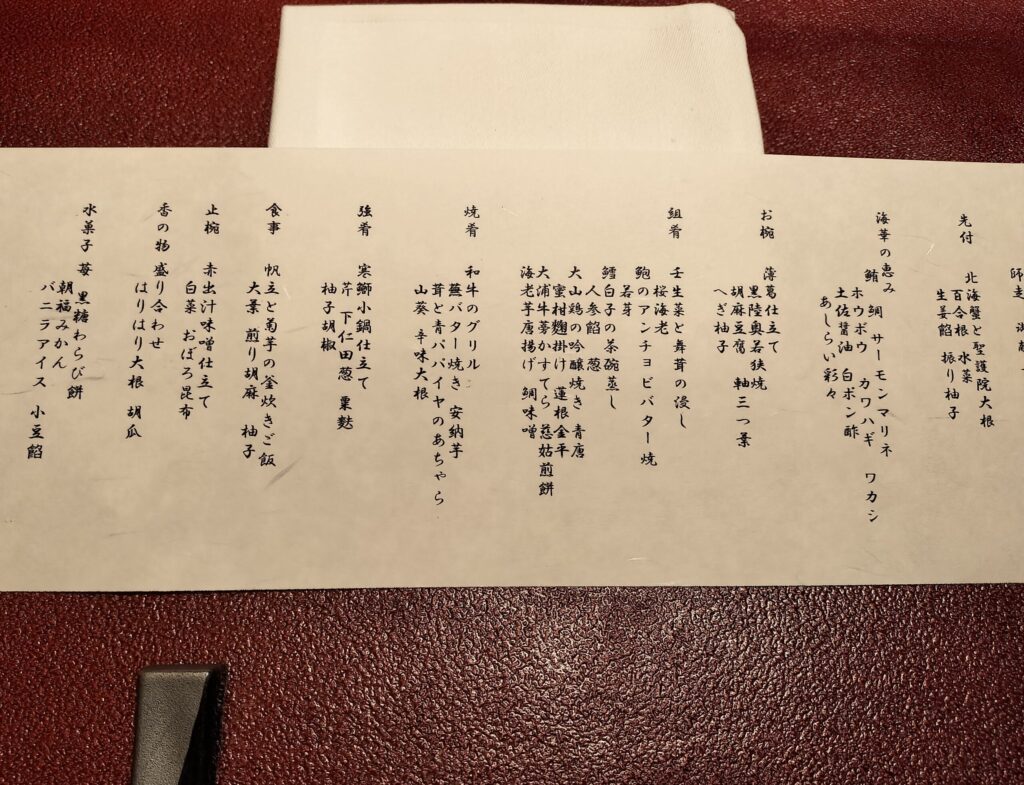 師走
先付
北海蟹と聖護院大根
百合根 水菜
生姜餡 振り柚子
海華の恵み
鮪 鯛 サーモンマリネ
ホウボウ カワハギ ワカシ
土佐醤油 白ポン酢
あしらい彩々
お椀
薄葛仕立て
黒陸奥若狭焼
胡麻豆腐 軸三つ葉
へぎ柚子
組肴
壬生菜と舞茸の浸し
桜海老
鮑のアンチョビバター焼
若芽
鱈白子の茶碗蒸し
人参餡 葱
大山鶏の吟醸焼き 青唐
蜜柑麹掛け 蓮根金平
大浦牛蒡かすてら 慈姑煎餅
海老芋唐揚げ 鯛味噌
焼肴
和牛のグリル
蕪バター焼き 安納芋
茸と青パパイヤのあちゃら
山葵 辛味大根
強肴
寒鰤小鍋仕立て
芹 下仁田葱 粟麩
柚子胡椒
食事
帆立と菊芋の釜炊きご飯
大葉 煎り胡麻 柚子
止椀
赤出汁味噌仕立て
白菜 おぼろ昆布
香の物
盛り合わせ
はりはり大根 胡瓜
水菓子
黒糖わらび餅
苺 朝福みかん
バニラアイス 小豆餡